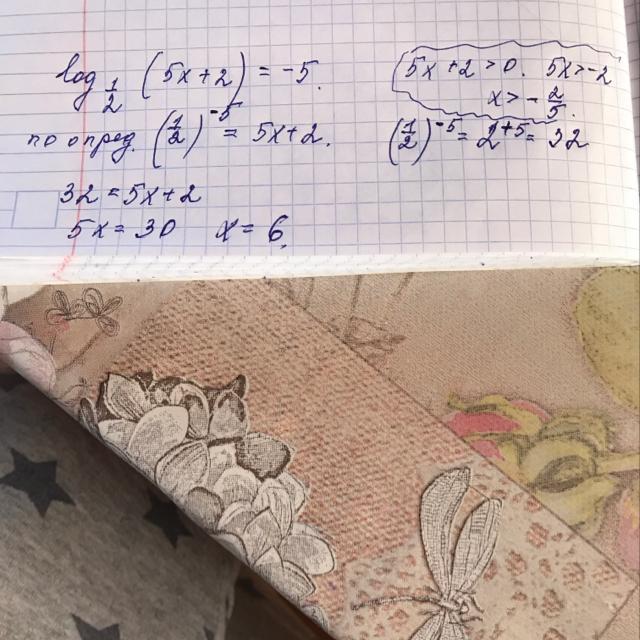 log 1/2 (5x+2) = -5.
5x+2 > 0. 5x > -2
x > -2/5.
по опред. (1/2)^-5 = 5x+2.
(1/2)^-5 = 2^+5 = 32
32 = 5x+2
5x = 30 x = 6.